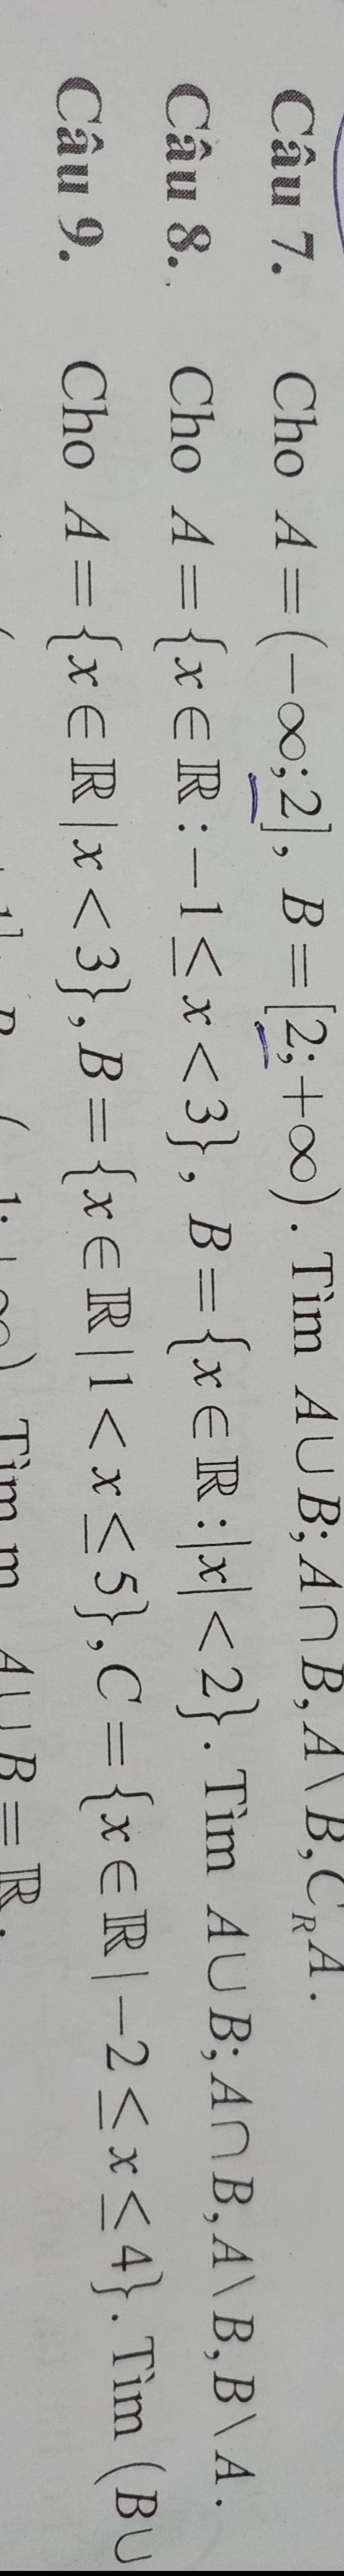 Câu 7. Cho A = (−∞;2], B = [2;+∞). Tìm A∪B; A∩B, A\B, C_R A.
Câu 8. Cho A = {x ∈ ℝ : −1 ≤ x < 3}, B = {x ∈ ℝ : |x| < 2}. Tìm A∪B; A∩B, A\B, B\A.
Câu 9. Cho A = {x ∈ ℝ | x < 3}, B = {x ∈ ℝ | 1 < x ≤ 5}, C = {x ∈ ℝ | −2 ≤ x ≤ 4}. Tìm (B∪
Tìm m A∪B = ℝ.